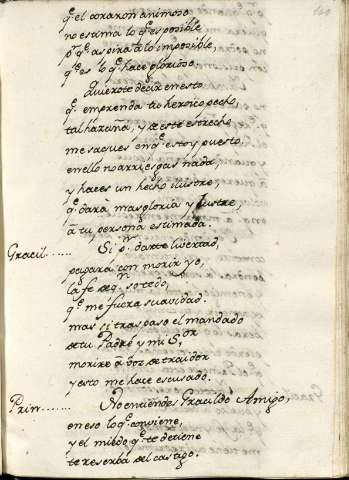 q.e el corazon animoso
no estima lo q.e es posible
p.r q.e aspira â lo imposible,
q.e es lo q.e hace glorioso.
Quierote decir en esto
q.e emprenda tu heroico pecho,
tal hazaña, y de este estrecho
me saques en q.e estoy puesto,
en ello no arriesgas nada,
y haces un hecho ilustre,
q.e darà mas gloria y lustre,
â tu persona estimada.
Gracil...... Si p.r darte livertad,
pagara con morir yo,
la fe de q.n so
q.e me fuera suavidad.
mas si traspaso el mandado
de tu Padre y mi S.or
morire â voz de traidor
y esto me hace escusado.
Prin....... No entiendes Gracildo Amigo,
en eso lo q.e conviene,
y el miedo q.e te detiene
te reserba del castigo;